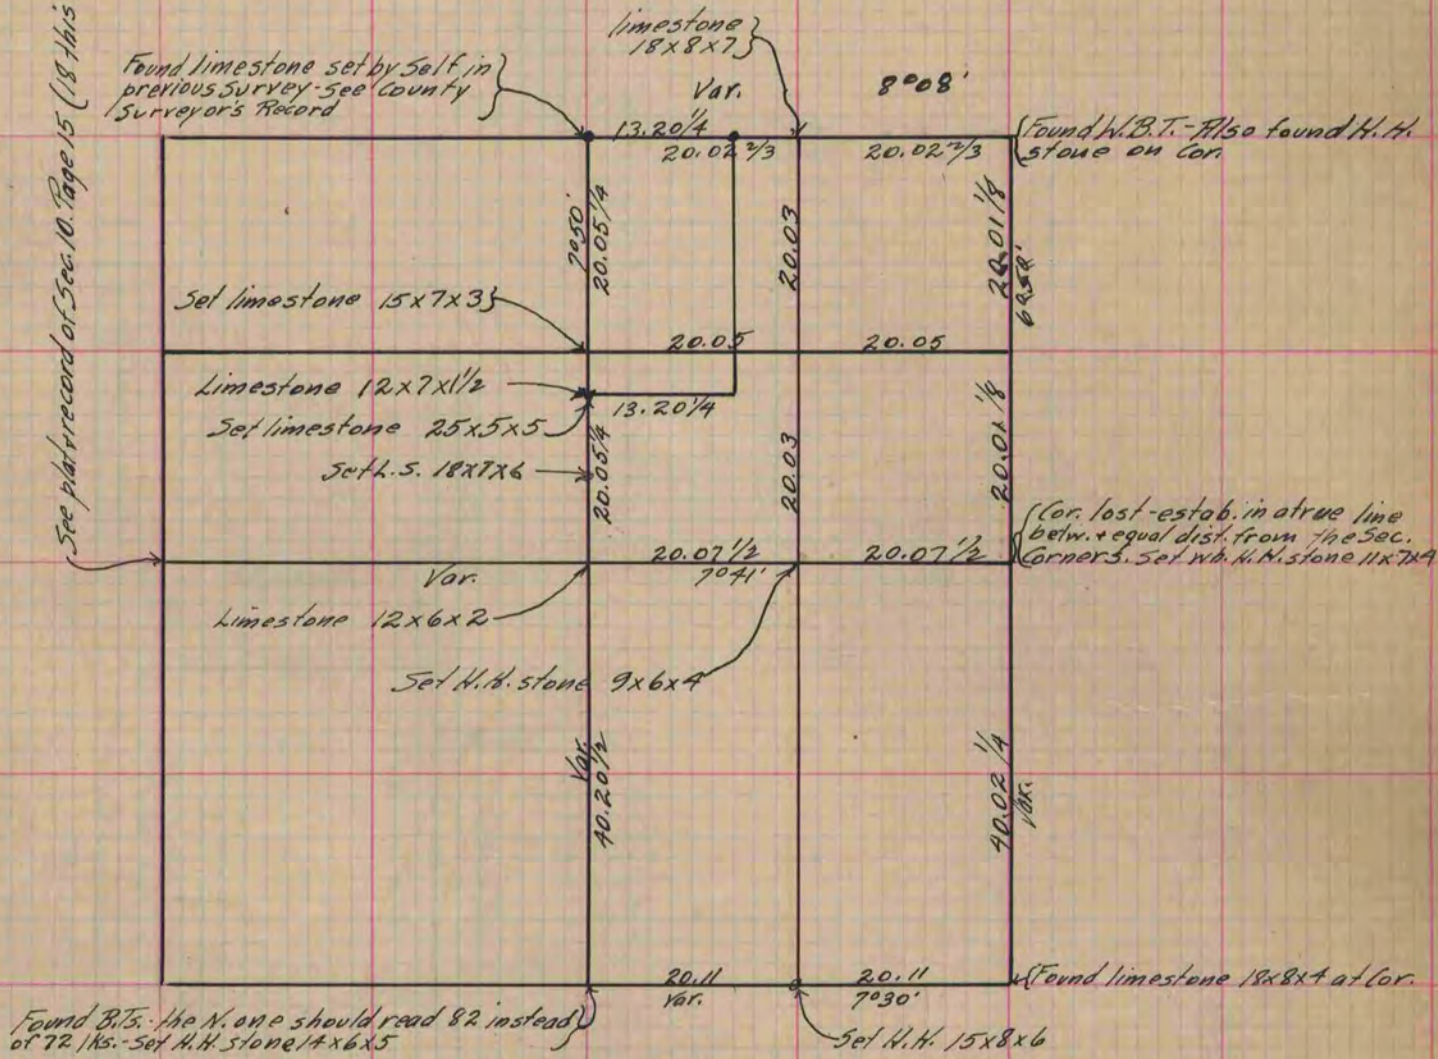 See plat & record of Sec. 10. Page 15 (18 this
Found limestone set by Self in
previous Survey - See County
Surveyor's Record
limestone
18x8x7
Var. 8°08'
13.20 1/4
20.02 2/3
20.02 2/3
Found W.B.T. - Also found H.H.
stone on Cor.
7°50'
20.05 1/4
20.03
20.01 1/8
Set limestone 15x7x3
20.05
20.05
Limestone 12x7x1 1/2
13.20 1/4
Set limestone 25x5x5
Set L.S. 18x7x6
20.05 1/4
20.03
20.01 1/8
Cor. lost - estab. in a true line
betw. & equal dist. from the Sec.
Corners. Set H.H. stone 11x7x4
20.07 1/2
20.07 1/2
Var.
7°41'
Limestone 12x6x2
Set H.H. stone 9x6x4
Var.
40.20 1/2
40.02 1/4
Var.
20.11
20.11
Var.
7°30'
Found limestone 18x8x4 at Cor.
Found B.Ts. - the N. one should read 82 instead
of 72 lks. - Set H.H. stone 14x6x5
Set H.H. 15x8x6